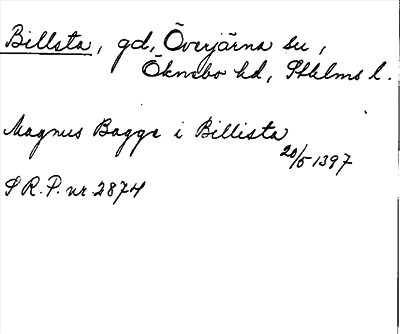 Billsta, gd, Överjärna su,
Öknebo hd, Sthlms l.
Magnus Bagge i Billista
20/5 1397
S R. P. nr 2874